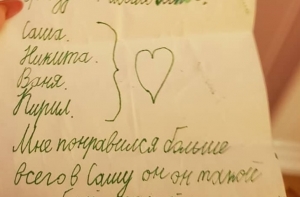 Саша.
Никита.
Ваня.
Кирил.
Мне понравился больше
всего в Сашу он он такой